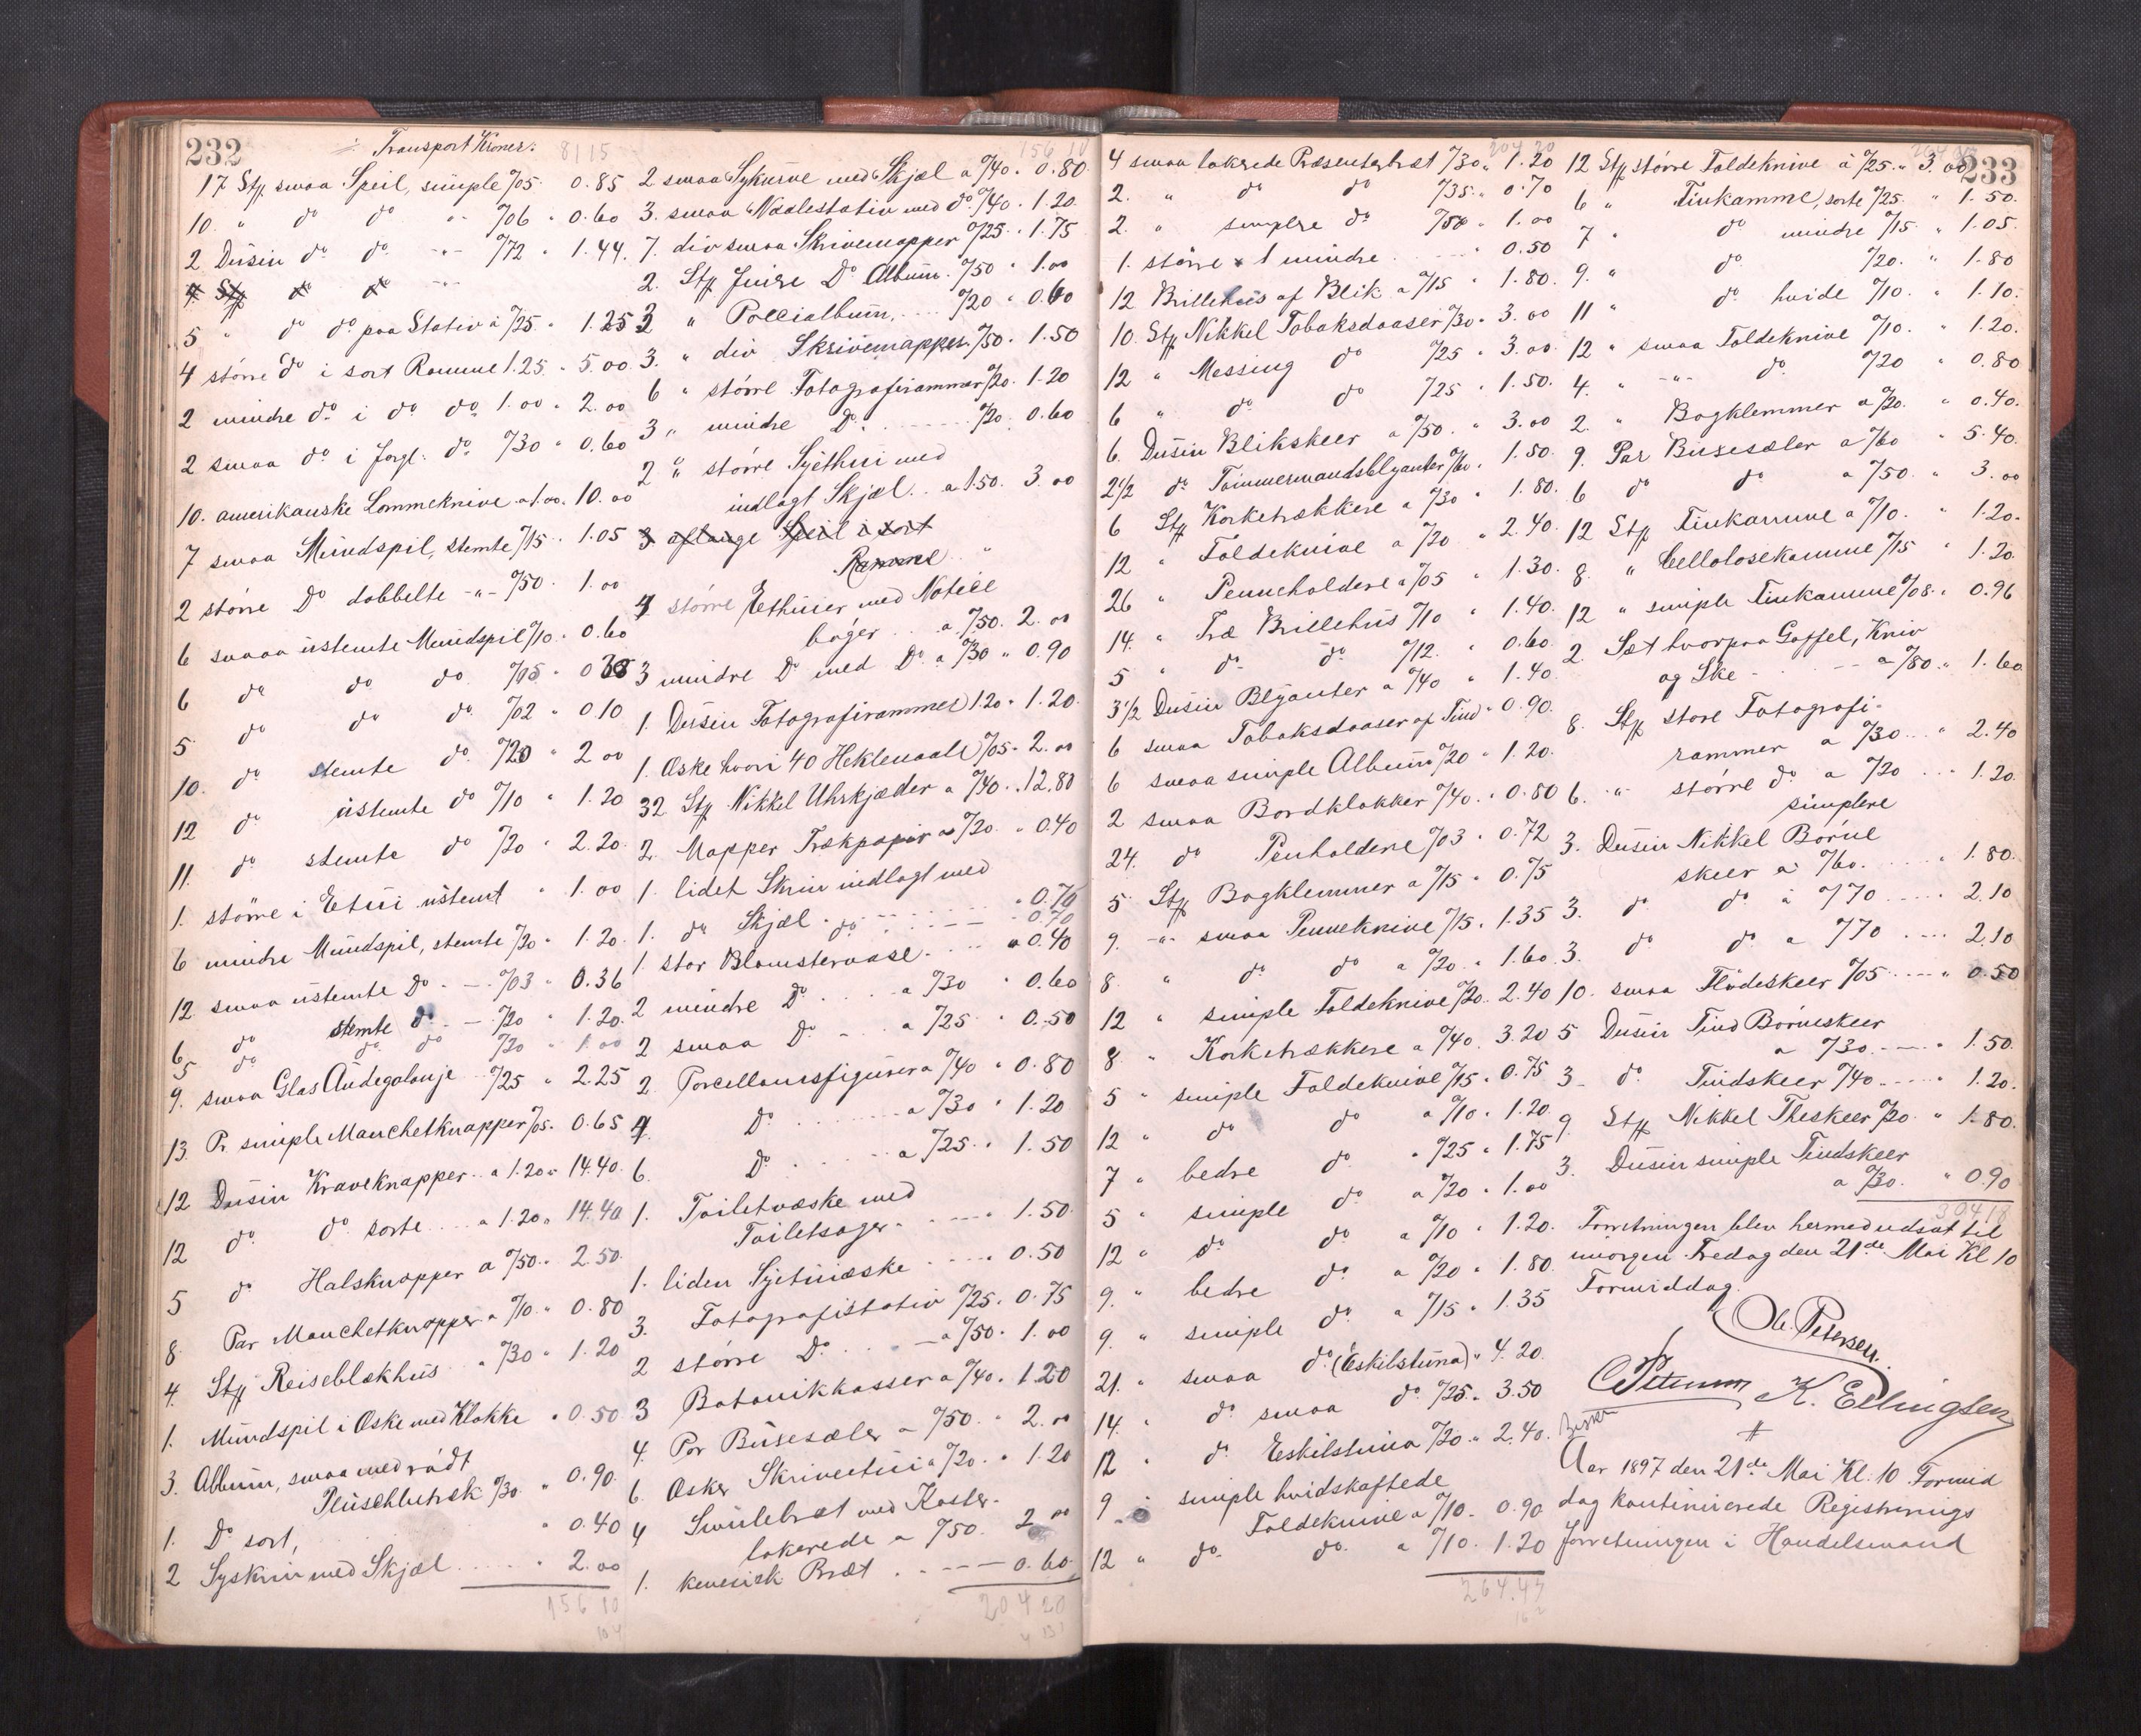 232
Transport Kroner: 8115
17 Stk smaa Speil, simple %05 0.85
10. " do do " %06 " 0.60
2 Dusin do do -"- %72 " 1.44.
4 Stk do do -"-
5 " do do paa Stativ à %25 " 1.25
4 större do i sort Ramme 1.25 " 5.00
2 mindre do i do do 1.00 " 2.00
2 smaa do i forgl: do %30 " 0.60
10. amerikanske Lommeknive a 1.00. 10.00
7 smaa Mundspil, stemte %15 " 1.05
2 större Do dobbelte -"- %50. 1.00
6 smaa ustemte Mundspil %10 " 0.60
6 do do do %05 " 0 30
5 do do do %02 " 0 10
10. do stemte do %20 " 2 00
12 do ustemte do %10 " 1.20
11. do stemte do %20 " 2.20.
1. större i Etui ustemt " 1.00
6 mindre Mundspil, stemte %20 " 1.20.
12 smaa ustemte Do - - %03 " 0.36
6 do stemte do - - %20 " 1.20.
5 do do do %20 " 1.00
9. smaa Glas Audegalonje %25 " 2.25
13. Pr simple Manchetknapper %05. 0.65
12 Dusin Kraveknapper .. a 1.20 " 14.40.
12 do do sorte .... a 1.20 " 14.40
5 do Halsknapper a %50 " 2.50.
8 Par Manchetknapper a %10. " 0.80
4. Stk Reiseblækhus " %30 " 1.20
1. Mundspil i Æske med Klokke " 0.50
3. Album, smaa med rödt
Pluschbetræk %30 " 0.90.
1. Do sort, " 0.40
2 Syskrin med Skjæl ..... " 2.00
156 10
156 10
2 smaa Sykurve med Skjæl a %40 " 0.80.
3. smaa Naalestativ med do %40 " 1.20.
7. div smaa Skrivemapper %25 " 1.75
2. Stk finere Do Album %50 " 1.00
3 " Poesialbum, ... %20 " 0.60
3. " div Skrivemapper %50 " 1.50
6 " större Fotografirammer %20. 1.20
3 " mindre Do. ...... %20. 0.60
2 " större Syethui med
indlagt Skjæl .. a 1.50. 3.00
3 aflange Speil i sort
Ramme "
4 större Ethuier med Notice
böger .. a %50. 2.00
3 mindre Do med Do a %30 " 0.90
1. Dusin Fotografirammer 1.20 " 1.20.
1. Æske hvori 40 Heklenaale %05 " 2.00
32 Stk Nikkel Uhrkjæder a %40 " 12.80
2. Mapper Trækpapir a %20. " 0.40
1. lidet Skrin indlagt med
Skjæl " 0.70
1. do do " 0.70
1. stor Blomstervase. .... " 0.40
2 mindre Do .... a %30 " 0.60
2 smaa Do - . a %25 " 0.50
2. Porcellansfigurer a %40 " 0.80
4. Do. ...... a %30 " 1.20
6. Do. ...... a %25 " 1.50
1. Toiletvæske med
Toiletsager. ..... " 1.50.
1. liden Syetuiæske .... " 0.50
3. Fotografistativ %25. 0.75
2 större Do. . . - a %50. 1.00
3 Botanikkasser a %40 " 1.20
4. Par Buxesæler a %50. " 2.00
6. Æsker Skriveetui a %20. " 1.20
4 Smulebræt med Koster
lakerede a %50. 2.00
1. kenesisk Bræt . . - - - - 0.60.
204 20
204 20
4 smaa lakerede Præsenterbræt %30 " 1.20
2. " do do %35 " 0.70
2. " simplere do %50 " 1.00
1. större & 1 mindre. ..... " 0.50
12 Brillehus af Blik a %15 " 1.80.
10. Stk Nikkel Tobaksdaaser %30 " 3.00
12 " Messing do %25 " 3.00.
6 " do do %25 " 1.50.
6. Dusin Blikskeer a %50. " 3.00
2½ do Tömmermandsblyanter %60 " 1.50.
6 Stk Korketrækkere a %30 " 1.80.
12 " Foldeknive a %20 " 2.40.
26 " Penneholdere a %05 " 1.30.
14. " Træ Brillehus %10 " 1.40.
5 " do do %12. " 0.60.
3½ Dusin Blyanter a %40 " 1.40.
6 smaa Tobaksdaaser af Tind " 0.90.
6 smaa simple Album %20 " 1.20.
2 smaa Bordklokker %40. " 0.80
24. do Penholdere %03 " 0.72
5 Stk Bogklemmer a %15 " 0.75
9. -"- smaa Penneknive %15. 1.35
8. " do do a %20 " 1.60.
12 " simple Foldeknive %20. 2.40
8. " Korketrækkere a %40. 3.20
5 " simple Foldeknive %15 " 0.75
12 " do do a %10 " 1.20.
7 " bedre do " %25 " 1.75
5 " simple do a %20 " 1.00
12 " do do a %10 " 1.20.
9. " bedre do a %20 " 1.80.
9. " simple do a %15 " 1.35
21. " smaa do (Eskilstuna) " 4.20.
14. " do smaa do %25 " 3.50
12 " do Eskilstuna %20 " 2.40.
9 " simple hvidskaftede
Foldeknive a %10 - 0.90
12 " do do a %10. 1.20
264.47
233
12 Stk större Foldeknive à %25. " 3.00
6 " Finkamme, sorte %25. " 1.50.
7 " do mindre %15 " 1.05.
9. " do %20. " 1.80
11 " do hvide %10. " 1.10.
12 " smaa Foldeknive %10. " 1.20.
4. " -"- do %20 " 0.80
2. " Bogklemmer a %20. " 0.40.
9. Par Buxesæler a %60 " 5.40.
6 do do a %50. " 3.00
12 Stk Finkamme a %10. " 1.20.
8. " Cellolosekamme %15 " 1.20.
12 " simple Finkamme %08. " 0.96
2. Sæt hvorpaa Gaffel, Kniv
og Ske - - - a %80 " 1.60
8. Stk store Fotografi-
rammer a %30 ... " 2.40
6. " större do a %20 ... " 1.20.
simplere
3. Dusin Nikkel Börne
skeer a %60. .... " 1.80.
3. do do a %70 ..... 2.10
3. do do a %70 .... 2.10
10. smaa Flödeskeer %05 .... " 0.50
5 Dusin Tind Börneskeer
a %30. - - - " 1.50.
3 - do Tindskeer %40 ..... " 1.20.
9 Stk Nikkel Theskeer %20. " 1.80.
3. Dusin simple Tindskeer
a %30. " 0.90
304 18
Forretningen blev hermed udsat til
imorgen Fredag den 21de Mai Kl 10
Formiddag.
Ole Petersen.
K. Ellingsen
#
Aar 1897 den 21de Mai Kl. 10 Formid
dag kontinuerede Registrerings
forretningen i Handelsmand